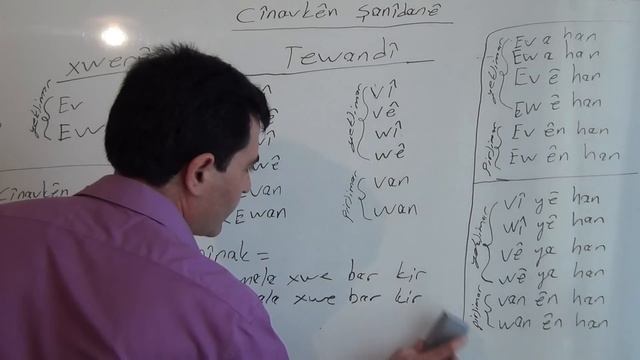 Cînavkên Şanîdanê
Tewandî
Ev
Ew
yekjimar
vî
vê
wî
wê
pirjimar
van
wan
van
Ewan
Cînavkên
xwe bar kir
xwe bar kir
yekjimar
Ev a han
Ew a han
Ev ê han
Ew ê han
pirjimar
Ev ên han
Ew ên han
yekjimar
vî yê han
wî yê han
vê ya han
wê ya han
pirjimar
van ên han
wan ên han